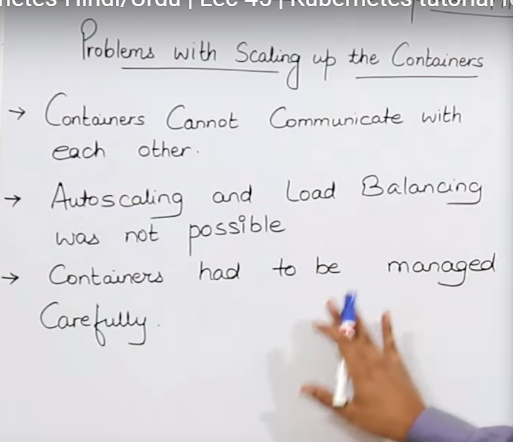 Hindi/Urdu | Lec 45 | Kubernetes tutorial
Problems with Scaling up the Containers
→ Containers Cannot Communicate with
each other.
→ Autoscaling and Load Balancing
was not possible
→ Containers had to be managed
Carefully.